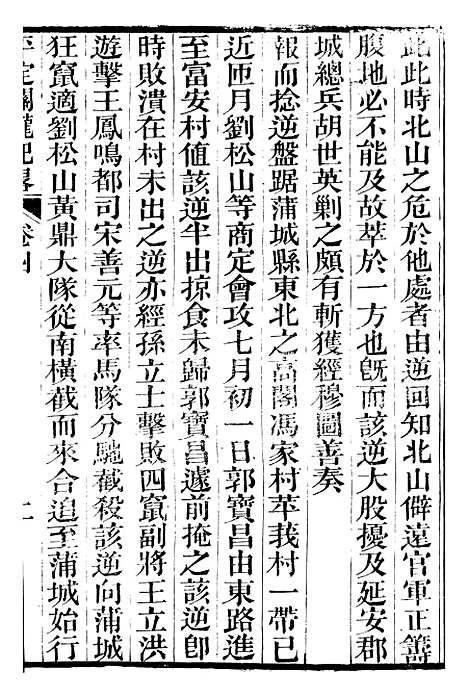 此此時北山之危於他處者由逆回知北山僻遠官軍正籌
腹地必不能及故萃於一方也旣而該逆大股擾及延安郡
城總兵胡世英剿之頗有斬獲經穆圖善奏
報而捻逆盤踞蒲城縣東北之高閣馮家村苹莪村一帶已
近匝月劉松山等商定會攻七月初一日郭寶昌由東路進
至富安村值該逆半出掠食未歸郭寶昌遽前掩之該逆卽
時敗潰在村未出之逆亦經孫立士擊敗四竄副將王立洪
遊擊王鳳鳴都司宋善元等率馬隊分馳截殺該逆向蒲城
狂竄適劉松山黃鼎大隊從南橫截而來合追至蒲城始行
平定關隴紀畧 卷四 二